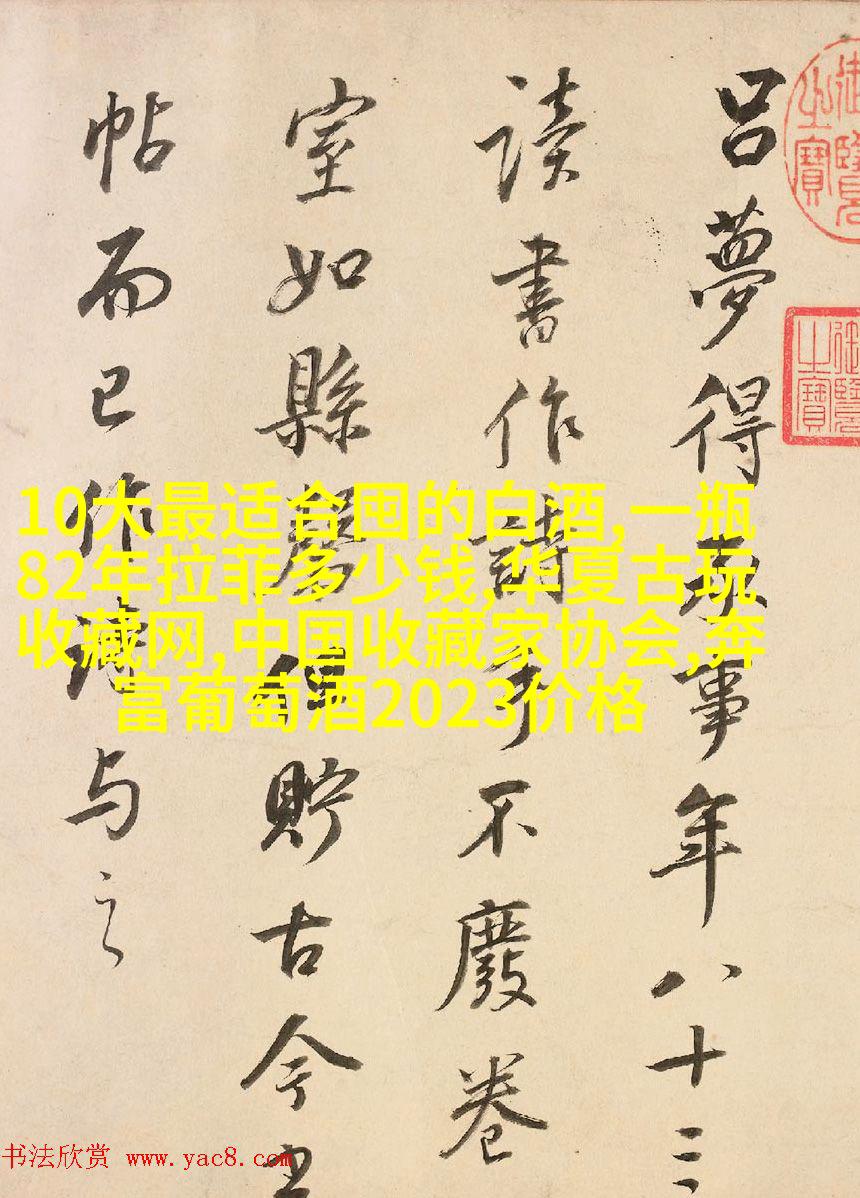 呂夢得承事年八十三
读書作詩手不廢卷
室如縣磬但貯古今
帖而已作詩与之
御覽之寶
御覽之寶
10大最适合囤的白酒,一瓶
82年拉菲多少钱,华夏古玩
收藏网,中国收藏家协会,奔
富葡萄酒2023价格
书法欣赏 www.yac8.com